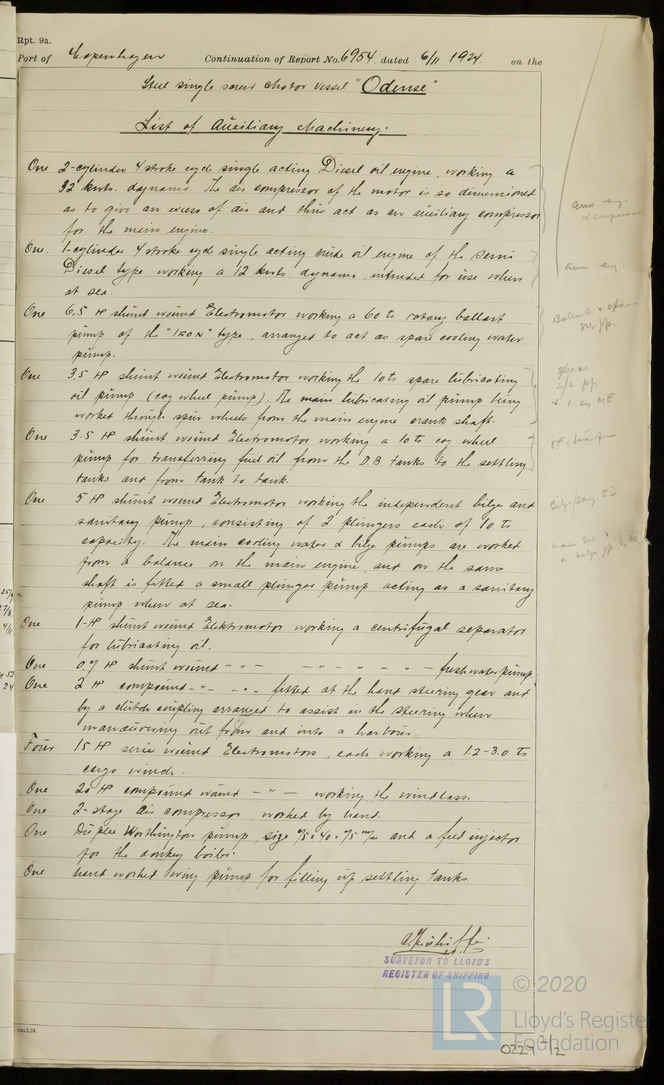 Rpt. 9a.
Port of Copenhagen Continuation of Report No. 6954 dated 6/11 1924. on the
Steel single screw Motor vessel "Odense"
List of Auxiliary Machinery.
One 2-cylinder 4 stroke cycle single acting Diesel oil engine, working a
32 kwts. dynamo. The air compressor of the motor is so dimensioned
as to give an excess of air and thus act as an auxiliary compressor
for the main engine.
One. 1-cylinder 4 stroke cycle single acting crude oil engine of the semi
Diesel type working a 12 kwts dynamo, intended for use when
at sea
One 6.5 HP shunt wound Electromotor working a 60 ts rotary ballast
pump of the "IRON" type, arranged to act as spare cooling water
pump.
One 3.5 HP shunt wound Electromotor working the 10 ts spare lubricating
oil pump (cog wheel pump). The main lubricating oil pump being
worked through spur wheels from the main engine crank shaft.
One 3.5 HP shunt wound Electromotor working a 10 ts cog wheel
pump for transferring fuel oil from the D.B tanks to the settling
tanks and from tank to tank.
One 5 HP shunt wound Electromotor working the independent bilge and
sanitary pump, consisting of 2 plungers each of 10 ts
capacity. The main cooling water & bilge pumps are worked
from a balance on the main engine, and on the same
shaft is fitted a small plunger pump acting as a sanitary
pump when at sea.
One 1-HP shunt wound Elektromotor working a centrifugal separator
for lubricating oil.
One 0.7 HP shunt wound - " - - " - " - " - fresh water pump
One 2 HP compound - " - - " - fitted at the hand steering gear and
by a clutch coupling arranged to assist in the steering when
manoeuvering out from and into a harbour.
Four 15 HP serie wound Electromotors, each working a 1.2-3.0 ts
cargo winch.
One 20 HP compound wound - " - working the windlass.
One 2-stage air compressor, worked by hand.
One Duplex Worthington pump, size and a feed injector
for the donkey boiler.
One hand worked wing pump for filling up settling tanks.
SURVEYOR TO LLOYD'S
REGISTER OF SHIPPING
LR © 2020
Lloyd's Register
Foundation
0224 2/2